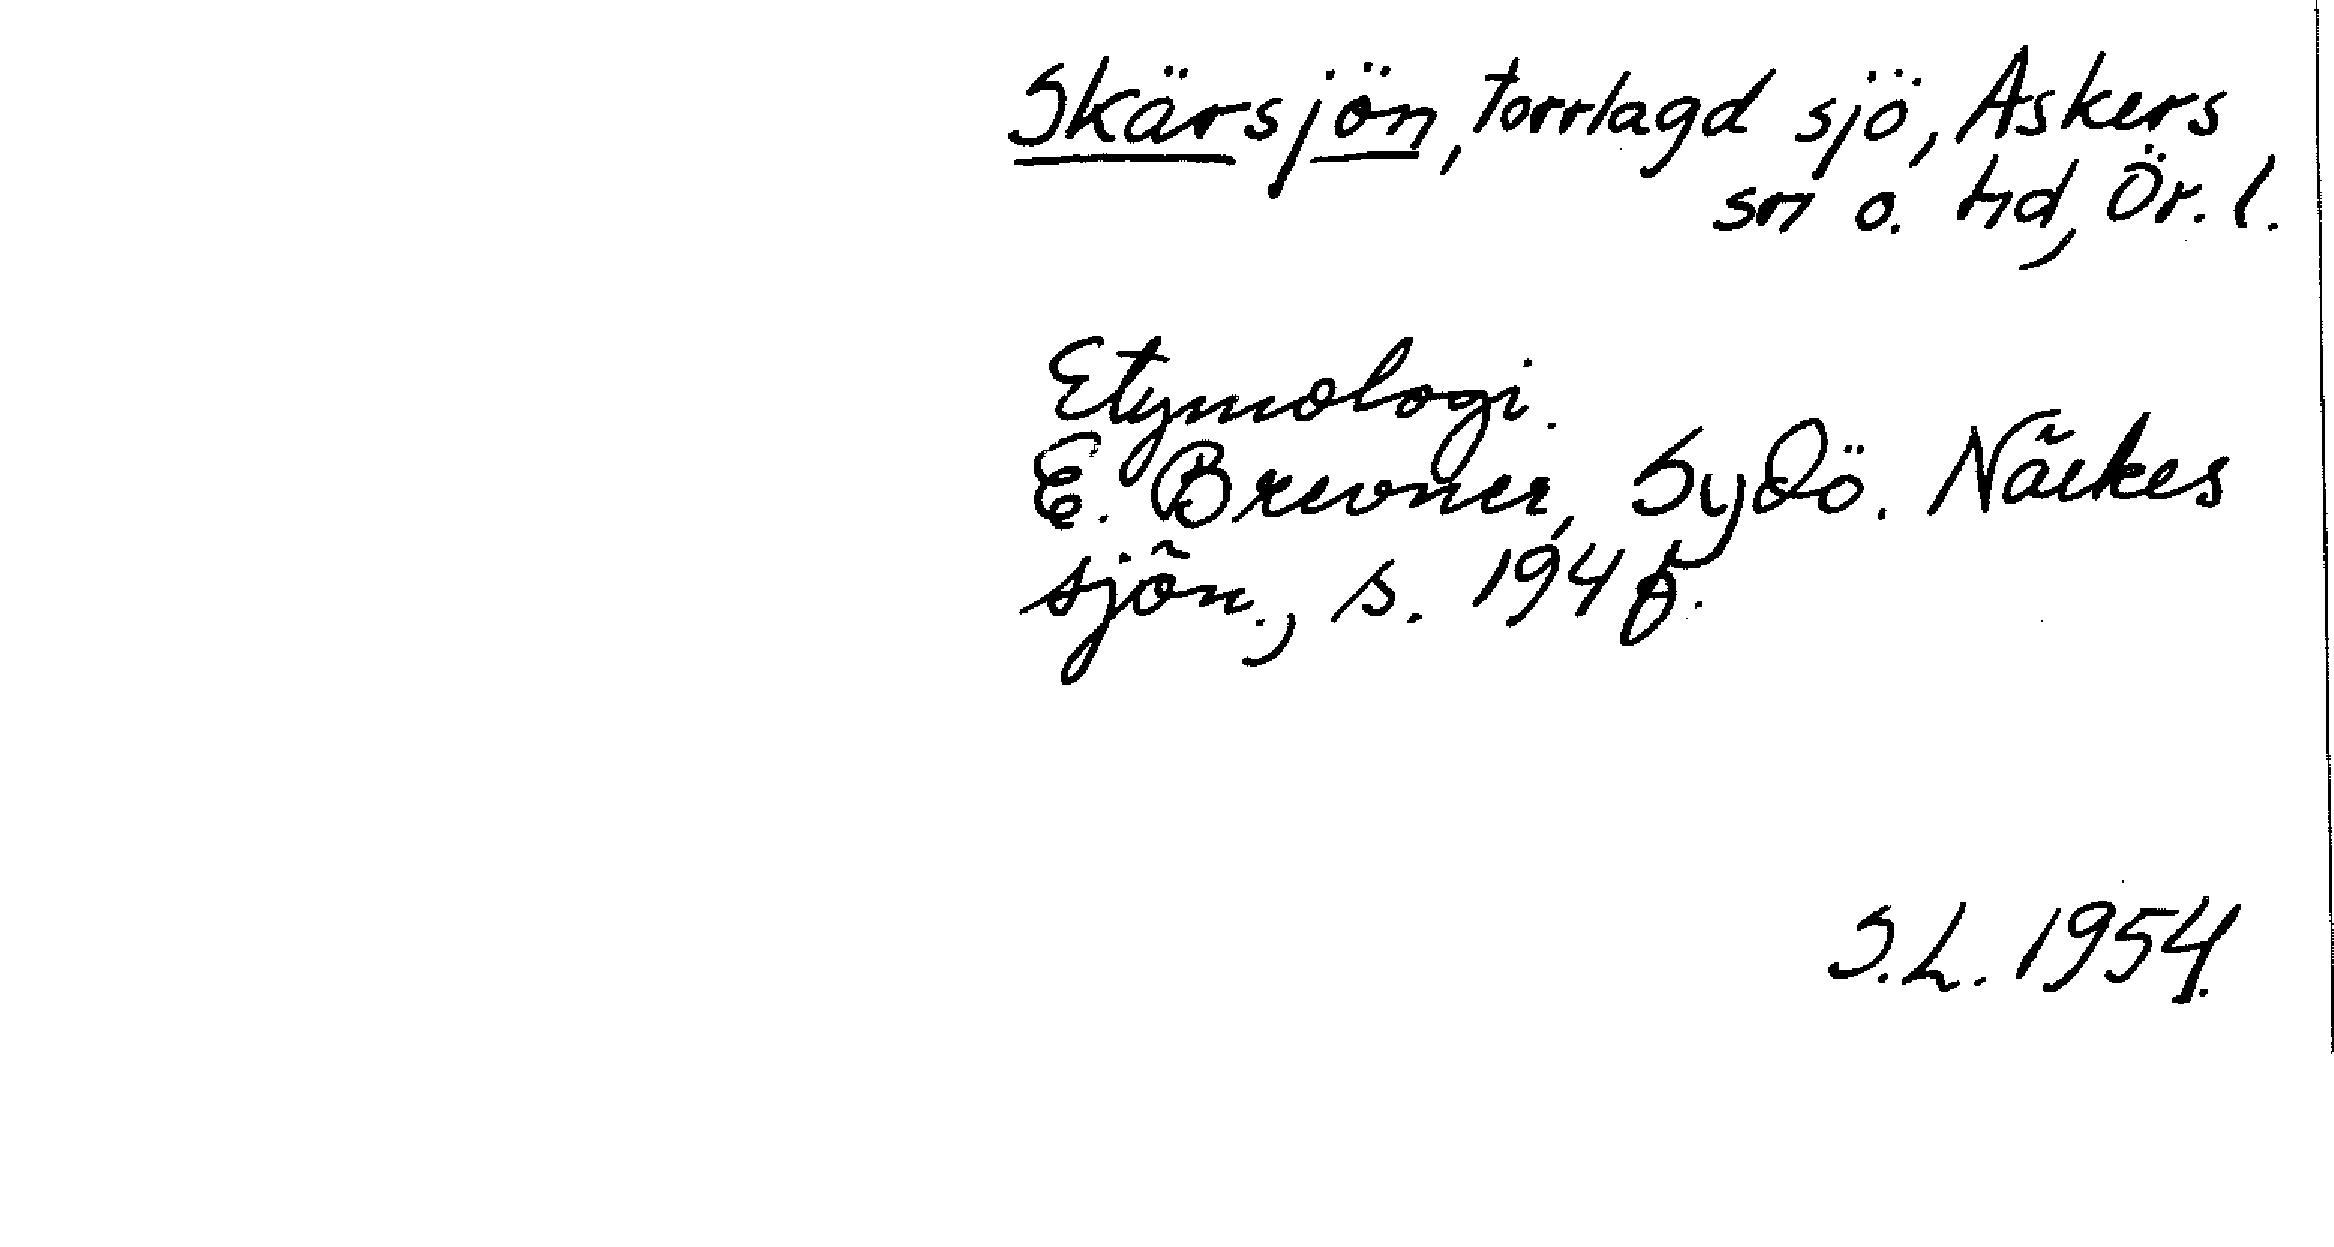 Skärsjön, torrlagd sjö, Askers
sn o. hd, Ör. l.
Etymologi.
E. Brevner, Sydö. Närkes
sjön., s. 194 f.
S.L. 1954.